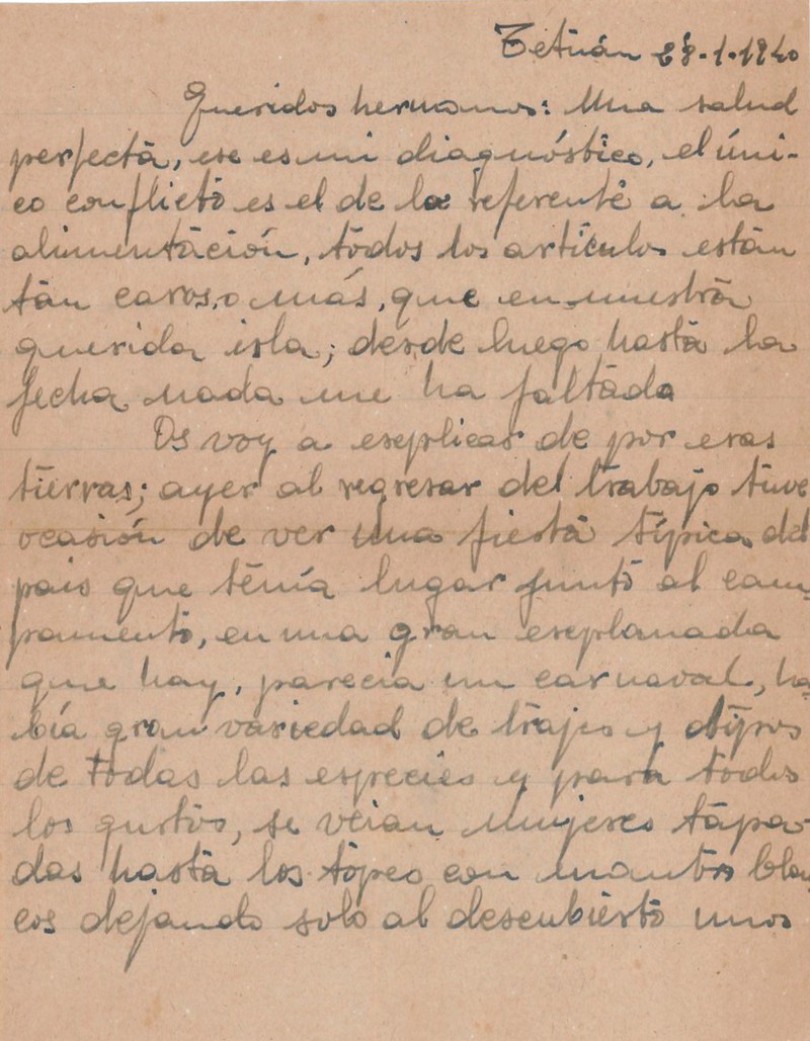 Tetuán 28-1-1940
Queridos hermanos: Una salud
perfecta, ese es mi diagnóstico, el úni-
co conflicto es el de lo referente a la
alimentación, todos los artículos están
tan caros, o más, que en nuestra
querida isla; desde luego hasta la
fecha nada me ha faltado
Os voy a esplicar de por esas
tierras; ayer al regresar del trabajo tuve
ocasión de ver una fiesta típica del
pais que tenía lugar junto al cam-
pamento, en una gran esplanada
que hay, parecia un carnaval, ha
bía gran variedad de trajes y tipos
de todas las especies y para todos
los gustos, se veian mujeres tapa-
das hasta los topes con mantos blan
cos dejando solo al descubierto unos